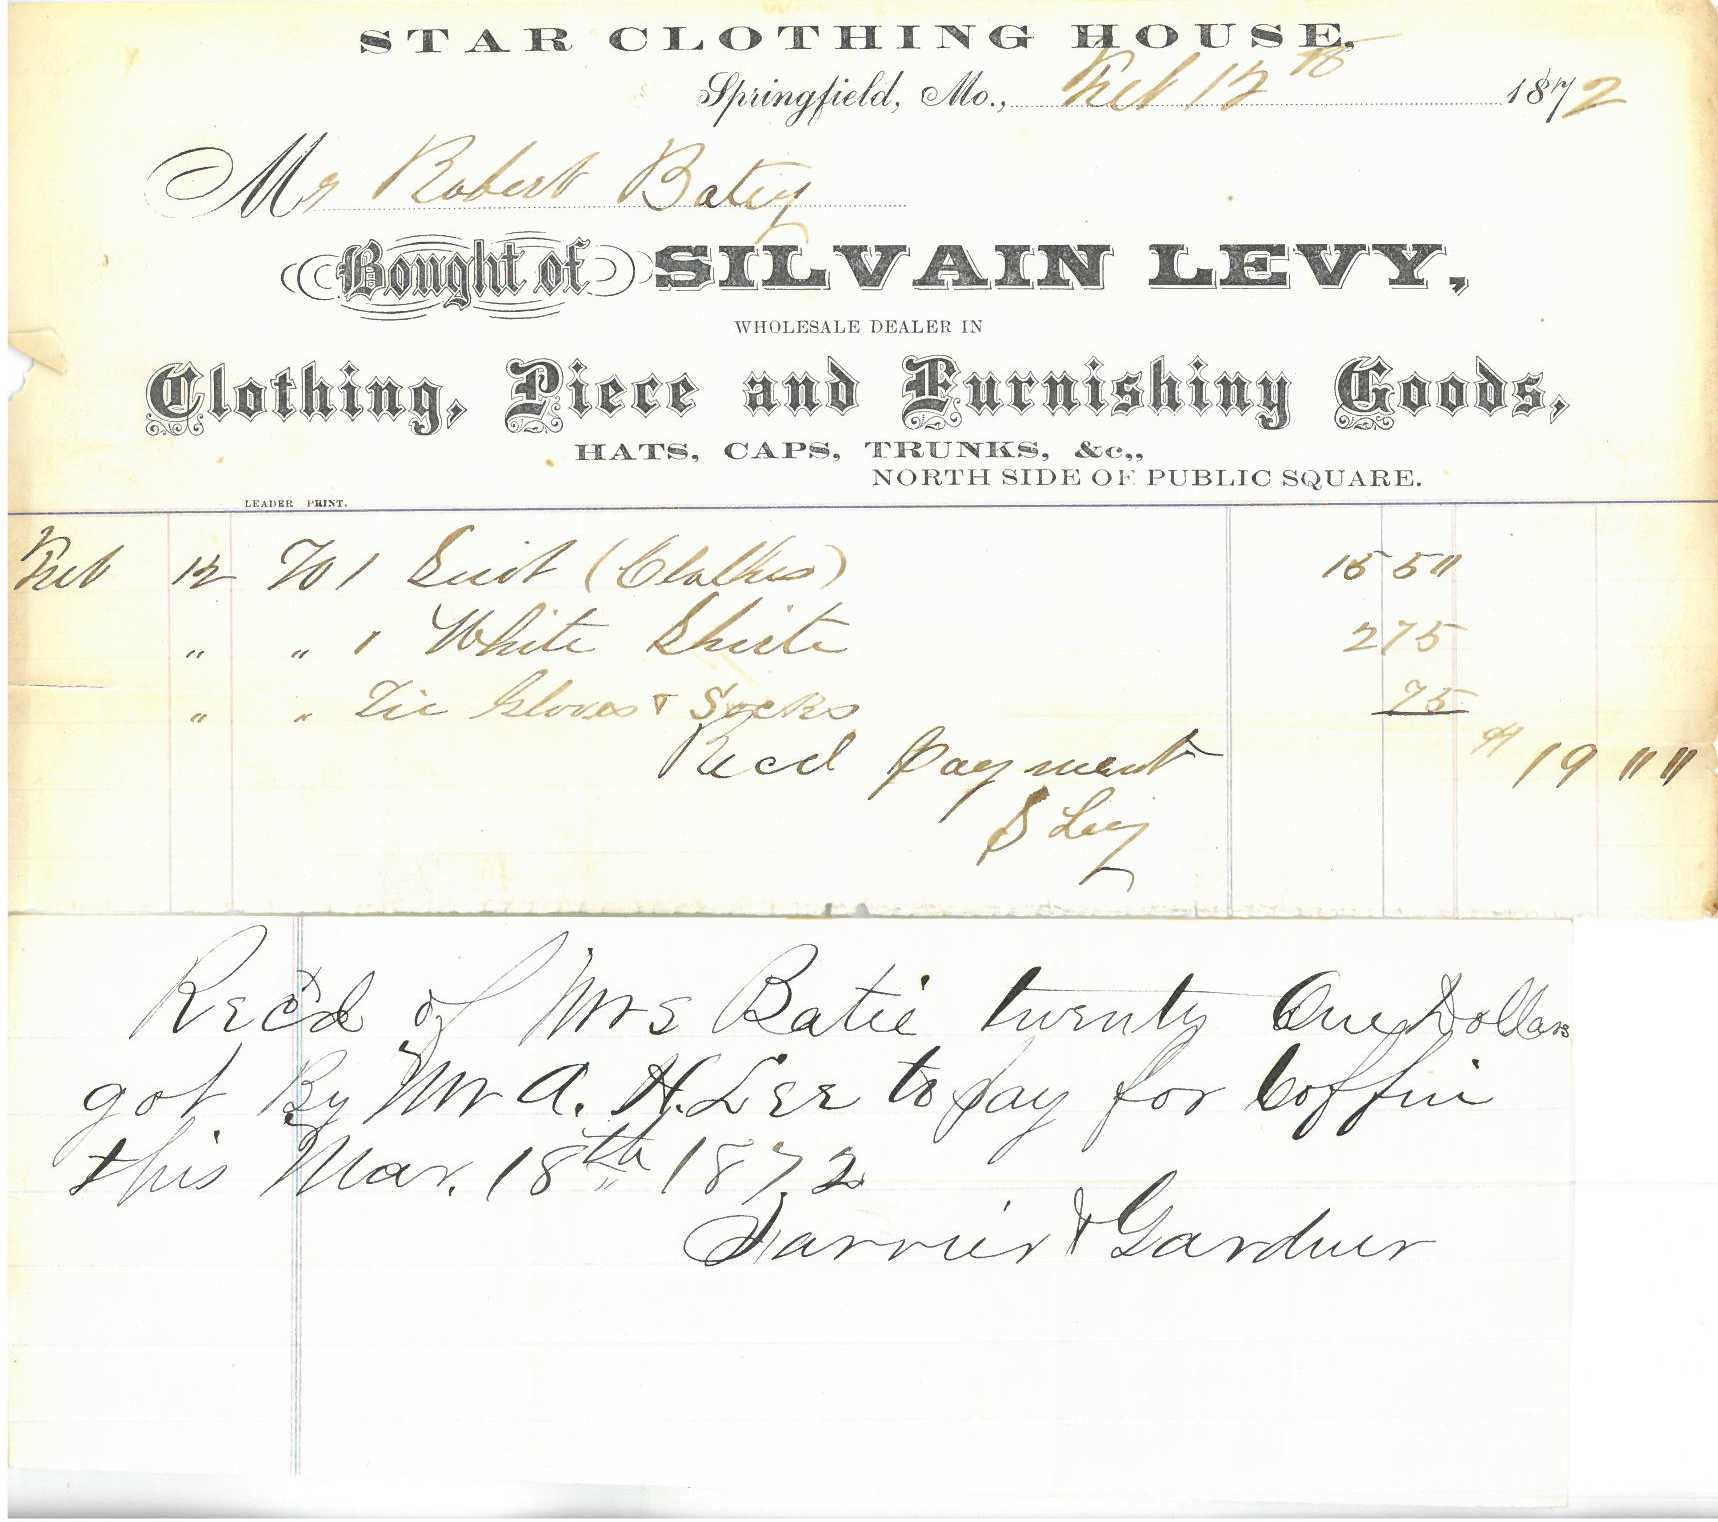 STAR CLOTHING HOUSE,
Springfield, Mo., Feb 12th 1872
Mr Robert Batey
Bought of SILVAIN LEVY,
WHOLESALE DEALER IN
Clothing, Piece and Furnishiny Goods,
HATS, CAPS, TRUNKS, &c.,
NORTH SIDE OF PUBLIC SQUARE.
LEADER PRINT.
Feb 12 To 1 Suit (Clothes) 15 5"
" " 1 White Shirte 2 75
" " Tie Gloves & Socks 75
Recd Payment $ 19 " "
S Levy
Rec'd of Mrs Batie twenty One Dollars
got By Mr A. H. Lee to pay for Coffin
this Mar. 18th 1872
& Gardner